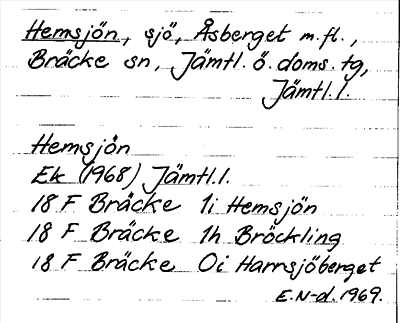 Hemsjön, sjö, Åsberget m.fl.,
Bräcke sn, Jämtl. ö. doms. tg,
Jämtl. l.
Hemsjön
Ek (1968) Jämtl. l.
18 F Bräcke 1i Hemsjön
18 F Bräcke 1h Bröckling
18 F Bräcke 0i Harrsjöberget
E.N-d. 1969.